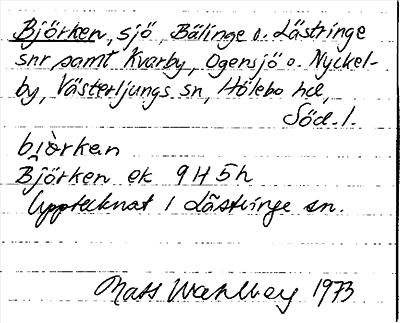 Björken, sjö, Bälinge o. Lästringe
snr samt Kvarby, Ogensjö o. Nyckel-
by, Västerljungs sn, Hölebo hd,
Söd. l.
biòrkan
Björken ek 9H5h
Upptecknat i Lästringe sn.
Mats Wahlberg 1973